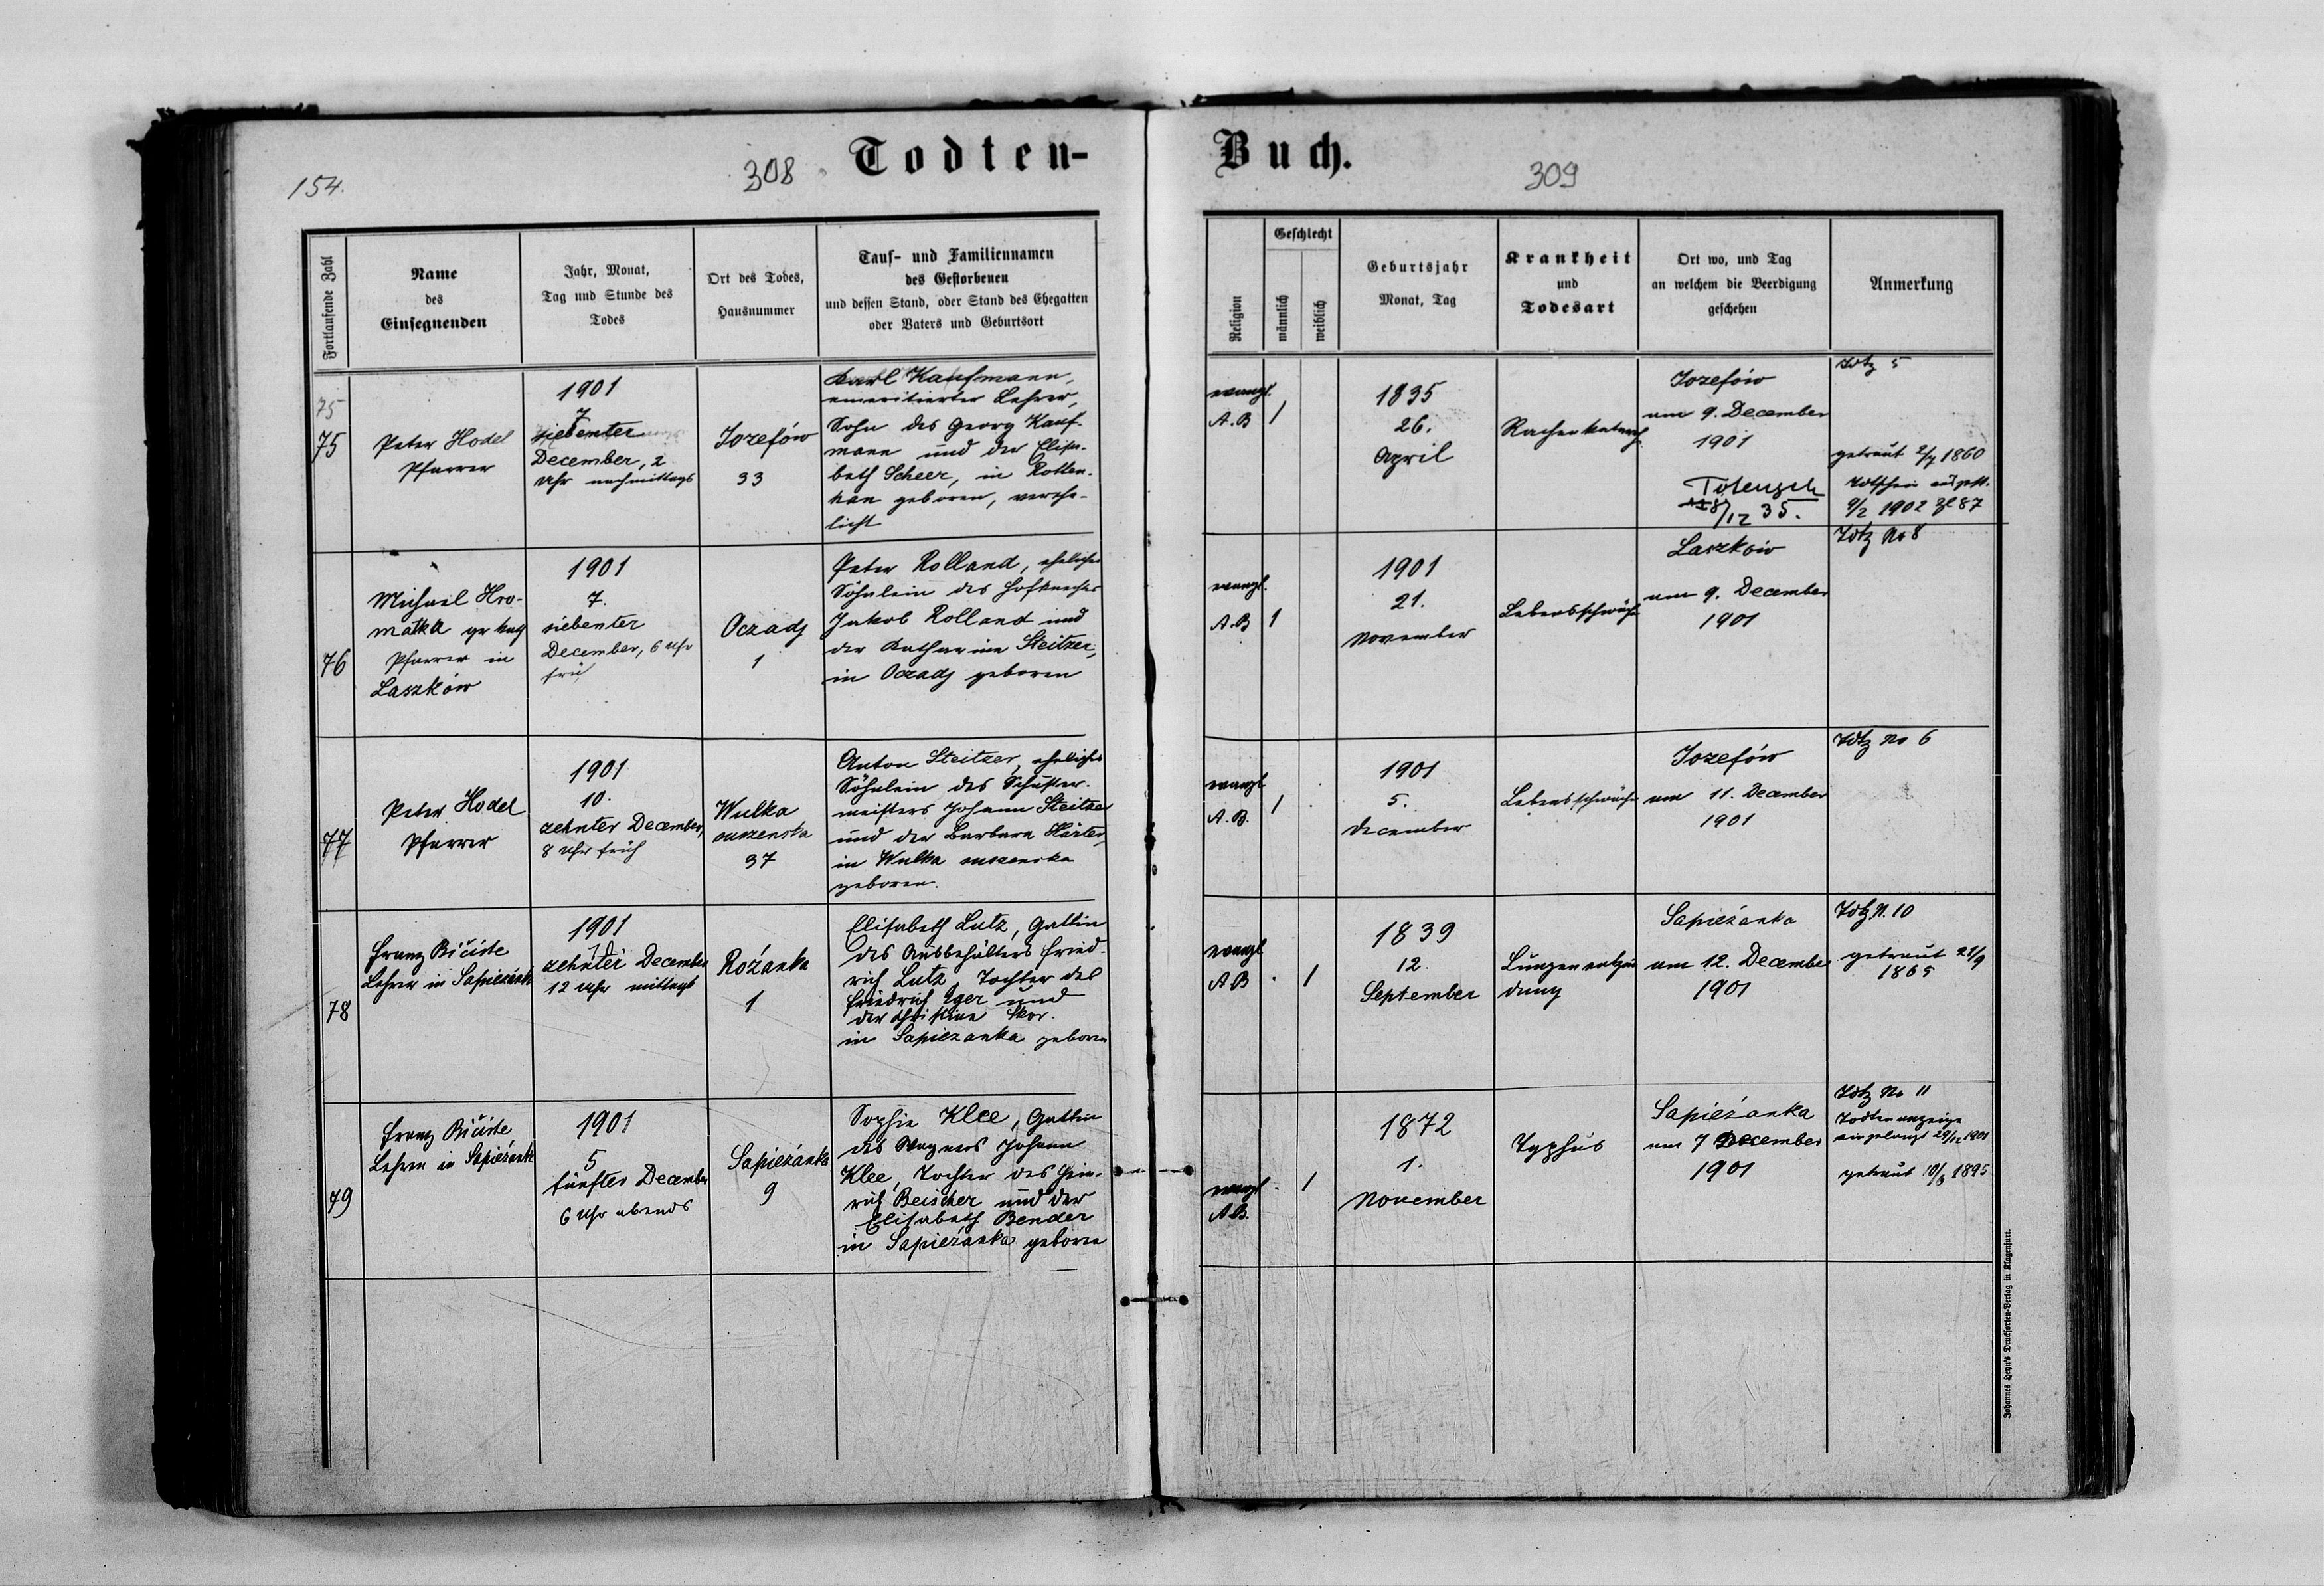 154.
308
Todten-
Buch.
309
Fortlaufende Zahl
Name
des
Einsegnenden
Jahr, Monat,
Tag und Stunde des
Todes
Ort des Todes,
Hausnummer
Tauf- und Familiennamen
des Gestorbenen
und dessen Stand, oder Stand des Ehegatten
oder Vaters und Geburtsort
Religion
Geschlecht
männlich
weiblich
Geburtsjahr
Monat, Tag
Krankheit
und
Todesart
Ort wo, und Tag
an welchem die Beerdigung
geschehen
Anmerkung
75
75
Peter Hodel
Pfarrer
1901
7
siebenter
December, 2
Uhr nachmittags
Jozefów
33
Karl Kaufmann,
emeritierter Lehrer,
Sohn des Georg Kauf-
mann und der Elisa-
beth Scheer, in Rotten-
han geboren, verehe-
licht
evangl.
A.B
1
1835
26.
April
Rachenkatarrh
Jozefów
am 9. December
1901
Totensch
/12 35.
Tdtz 5
getraut 2/7 1860
Totschein ausgest.
9/2 1902 Zl 87
76
Michael Hro-
matka gr kath
Pfarrer in
Laszków
1901
7.
siebenter
December, 6 Uhr
früh
Oczadj
1
Peter Rolland, eheliches
Söhnlein des Hofknechtes
Jakob Rolland und
der Katharina Steitzer,
in Oczadj geboren
evangl.
A.B
1
1901
21.
November
Lebensschwäche
Laszków
am 9. December
1901
Tdtz No 8
77
Peter Hodel
Pfarrer
1901
10.
zehnter December,
8 Uhr früh
Wulka
suszenska
37
Anton Steitzer, eheliches
Söhnlein des Schuster-
meisters Johann Steitzer
und der Barbara Härter,
in Wulka suszenska
geboren.
evangl
A.B.
1
1901
5.
December
Lebensschwäche
Jozefów
am 11. December
1901
Tdtz No 6
78
Franz Bičiste
Lehrer in Sapieżanka
1901
10
zehnter December
12 Uhr mittags
Rożanka
1
Elisabeth Lutz, Gattin
des Ausbehälters Fried-
rich Lutz, Tochter des
Friedrich Eger und
der Christine
in Sapiezanka geboren
evangl
A B
1
1839
12.
September
Lungenentzün
dung
Sapieżanka
am 12. December
1901
Tdtz N. 10
getraut 21/9
1865
79
Franz Bičiste
Lehrer in Sapieżanka
1901
5
fünfter December
6 Uhr abends
Sapieżanka
9
Sophie Klee, Gattin
des Wagners Johann
Klee, Tochter des Hein-
rich Beischer und der
Elisabeth Bender
in Sapieżanka geboren
evangl
A.B.
1
1872
1.
November
Typhus
Sapieżanka
am 7 December
1901
Tdtz No 11
Todtenanzeige
eingelangt 29/12 1901
getraut 10/8 1895
Johannes Heyn's Drucksorten-Verlag in Klagenfurt.